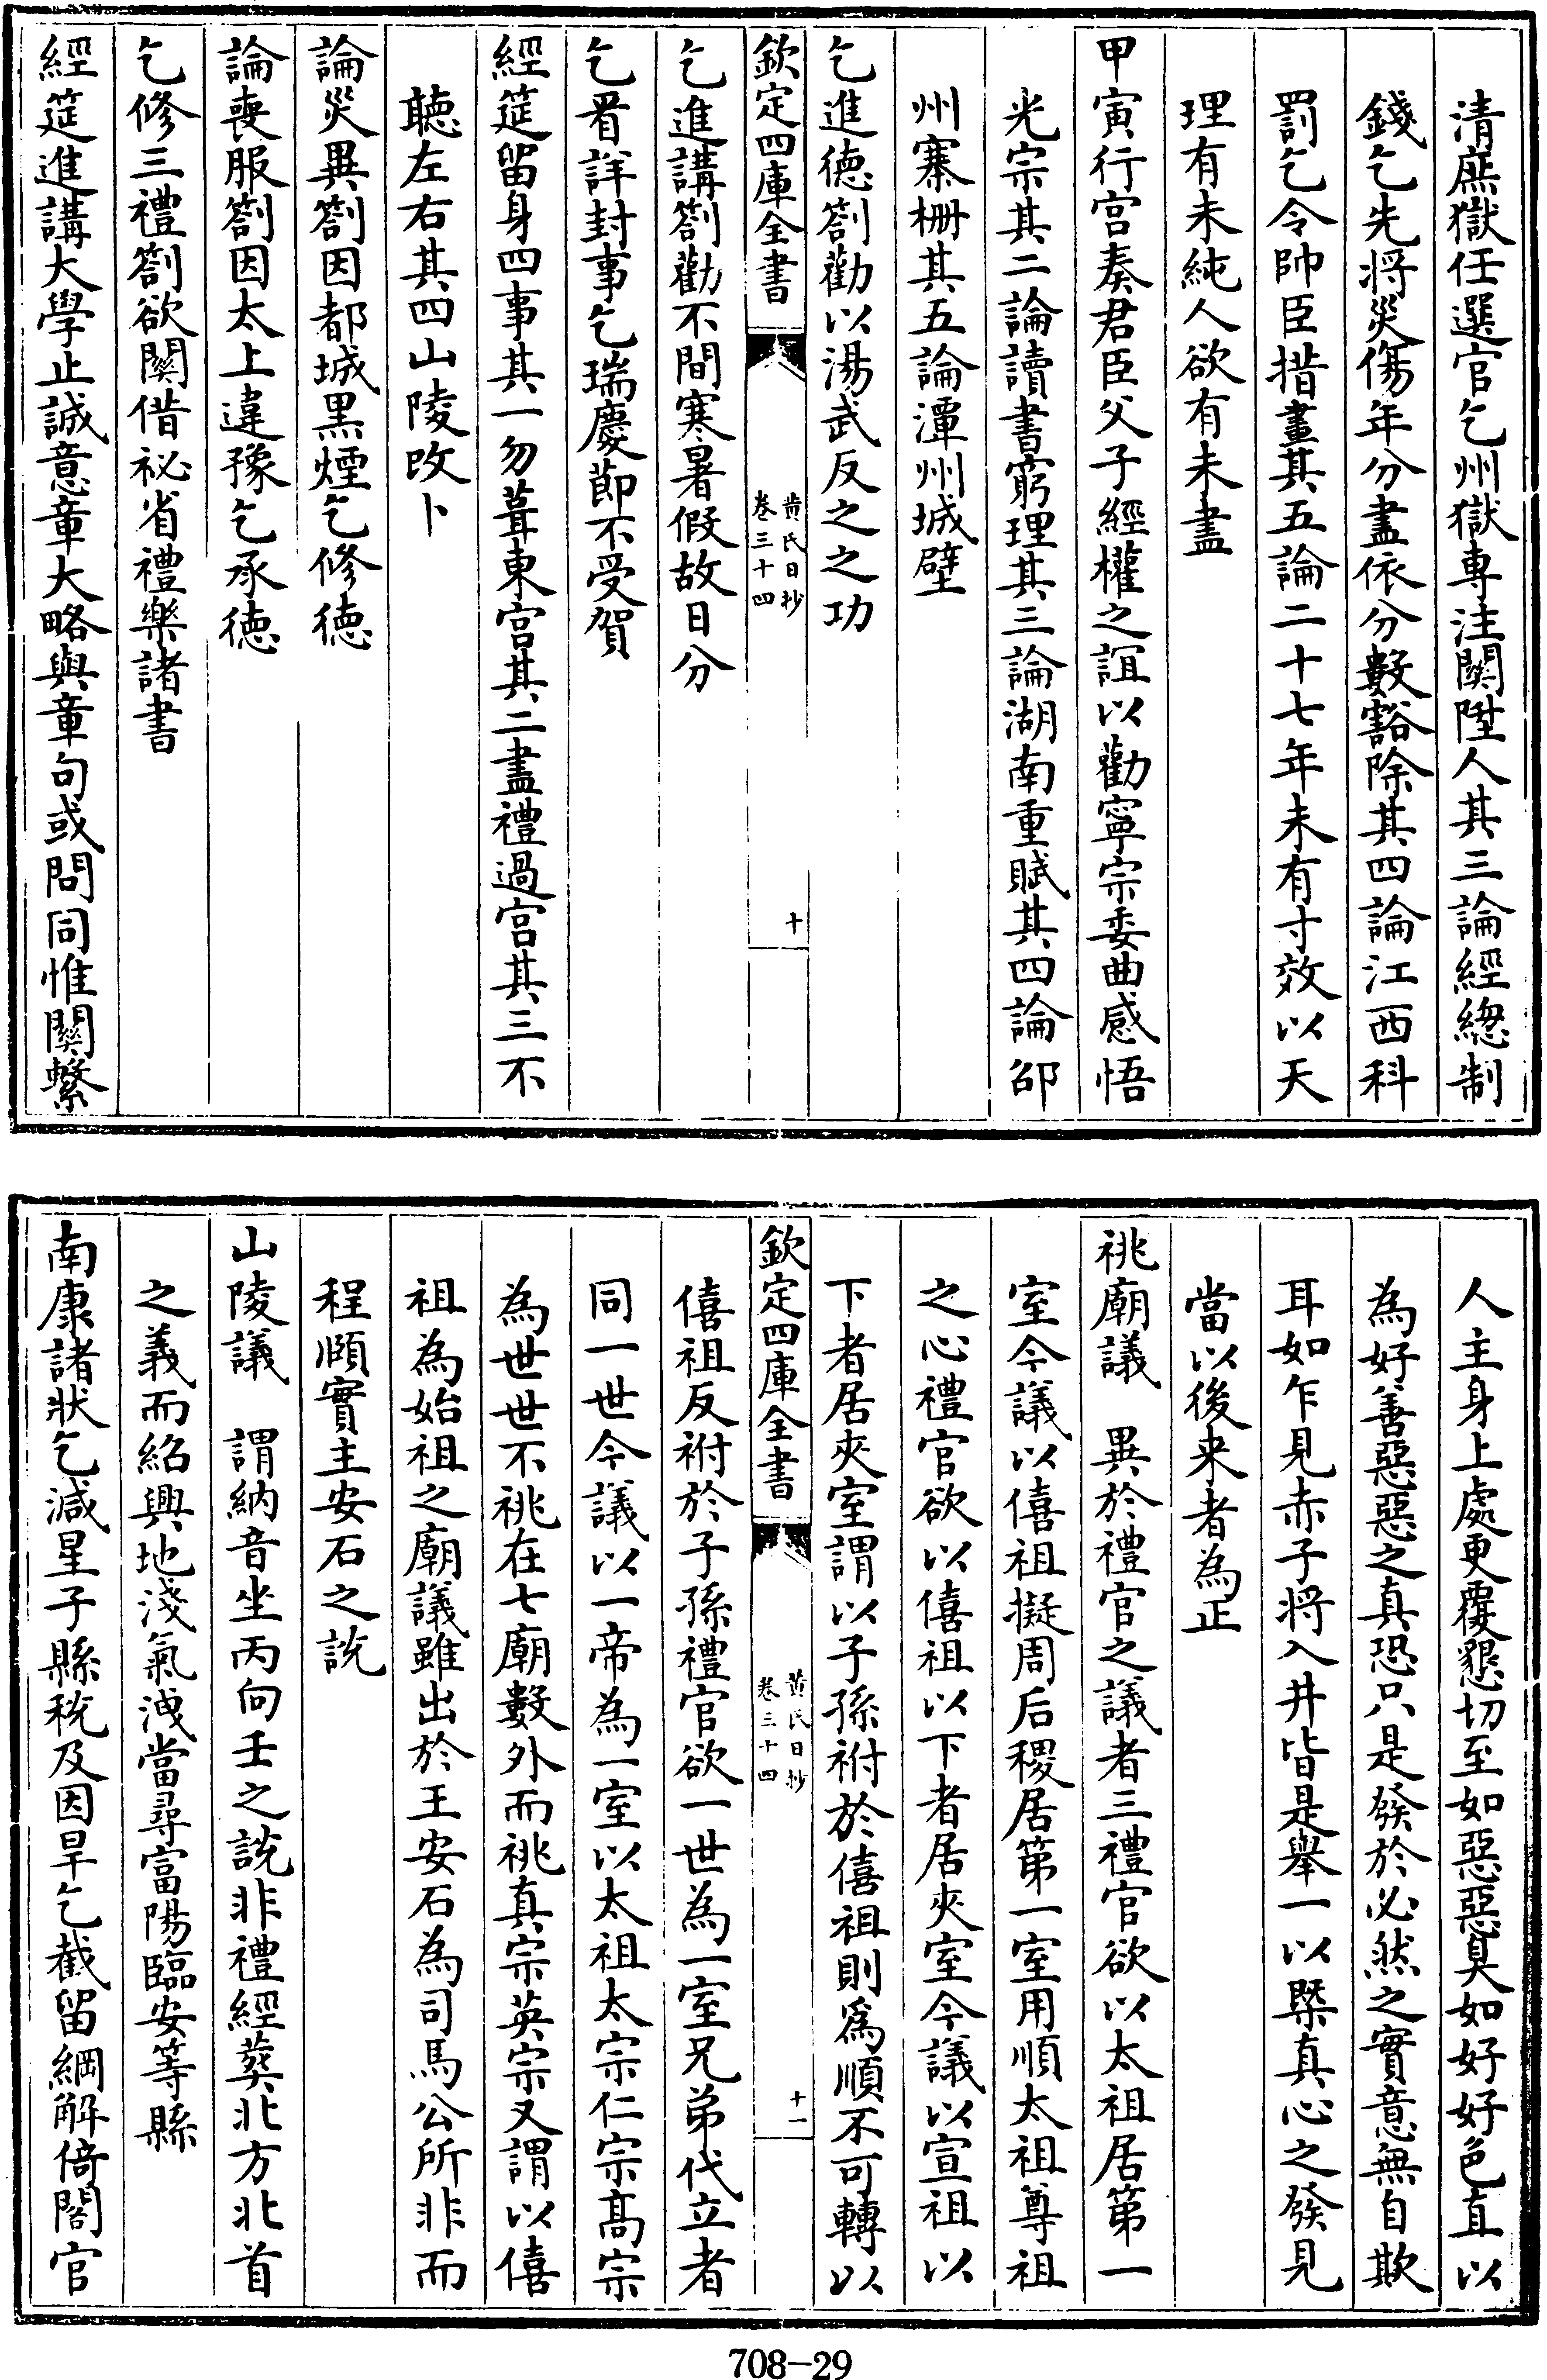 清庶獄任選官乞州獄專注關陞人其三論經緫制
錢乞先将災傷年分盡依分數豁除其四論江西科
罰乞令帥臣措畫其五論二十七年未有寸效以天
理有未純人欲有未盡
甲寅行宫奏君臣父子經權之誼以勸寧宗委曲感悟
光宗其二論讀書窮理其三論湖南重賦其四論邵
州寨栅其五論潭州城壁
乞進徳劄勸以湯武反之之功
欽定四庫全書
黄氏日抄
卷三十四
十
乞進講劄勸不間寒暑假故日分
乞看詳封事乞瑞慶節不受賀
經筵留身四事其一勿葺東宫其二盡禮過宫其三不
聽左右其四山陵改卜
論災異劄因都城黒煙乞修徳
論喪服劄因太上違豫乞承徳
乞修三禮劄欲關借祕省禮樂諸書
經筵進講大學止誠意章大略與章句或問同惟關繫
人主身上處更覆懇切至如惡惡臭如好好色直以
為好善惡惡之真恐只是發於必然之實意無自欺
耳如乍見赤子将入井皆是舉一以槩真心之發見
當以後来者為正
祧廟議　異於禮官之議者三禮官欲以太祖居第一
室今議以僖祖擬周后稷居第一室用順太祖尊祖
之心禮官欲以僖祖以下者居夾室今議以宣祖以
下者居夾室謂以子孫祔於僖祖則爲順不可轉以
欽定四庫全書
黄氏日抄
卷三十四
十一
僖祖反祔於子孫禮官欲一世為一室兄弟代立者
同一世今議以一帝為一室以太祖太宗仁宗髙宗
為世世不祧在七廟數外而祧真宗英宗又謂以僖
祖為始祖之廟議雖出於王安石為司馬公所非而
程頤實主安石之説
山陵議　謂納音坐丙向壬之説非禮經葬北方北首
之義而紹興地淺氣洩當尋富陽臨安等縣
南康諸狀乞減星子縣税及因旱乞截留綱解倚閣官
708-29